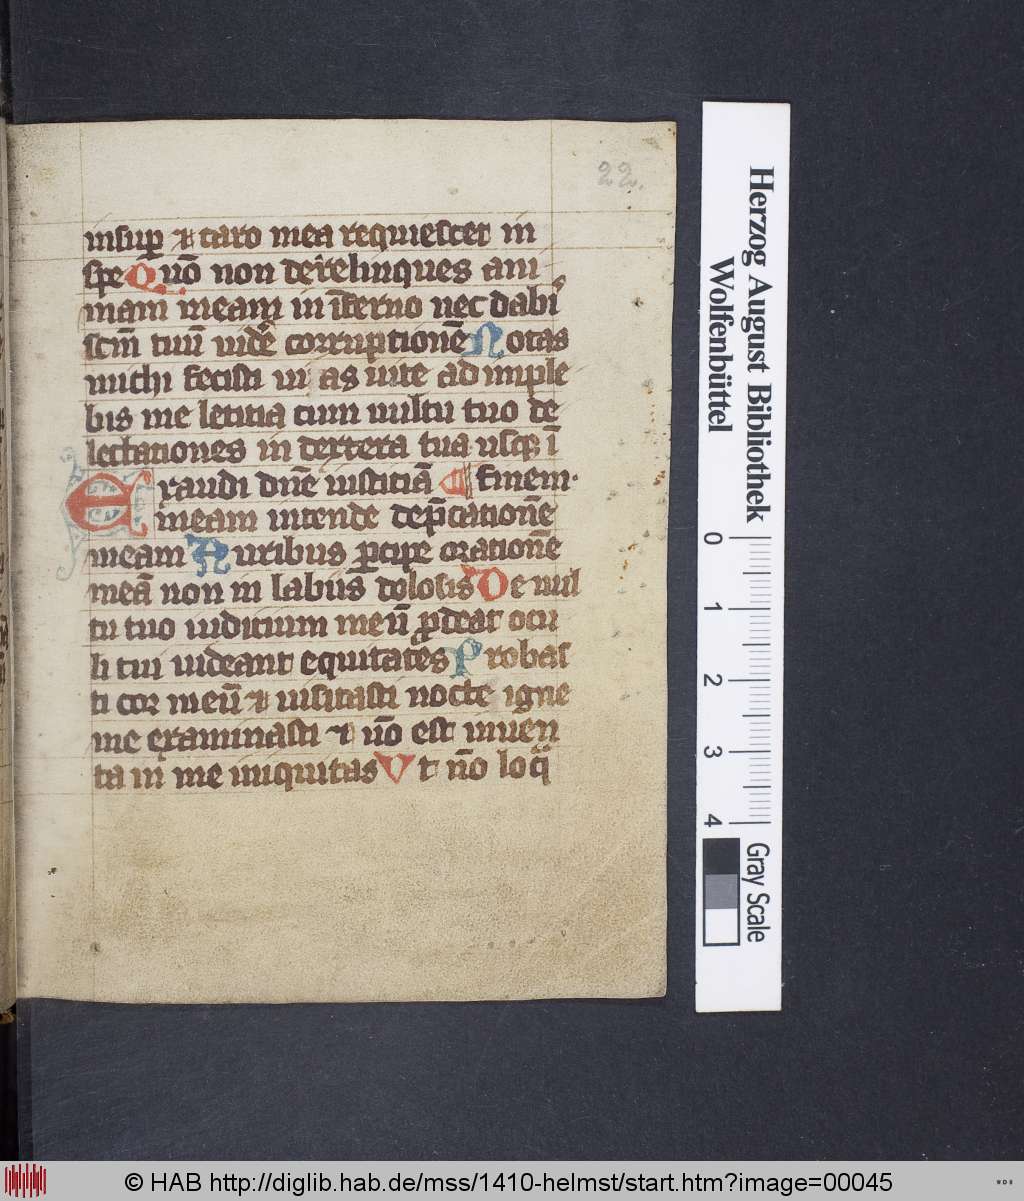 22.
insup̱ ⁊ caro mea requiescet in
spe Quō non derelinques ani
mam meam in īferno nec dabi
scm̄ tuū uidē corruptionē Notas
michi fecisti ui as uite ad imple
bis me letitia cum uultu tuo de
lectationes in dextera tua usq; ī
Exaudi dn̄e iusticiā ¶ finem.
meam intende dep̄cationē
meam Auribus ꝑcipe orationē
meā non in labiis dolosis De uul
tu tuo iudicium meū ꝓdeat ocu
li tui uideant equitates Probas
ti cor meū ⁊ uisitasti nocte igne
me examinasti ⁊ nō est inuen
ta in me iniquitas Vt nō loq̄
Herzog August Bibliothek
Wolfenbüttel
0 1 2 3 4
Gray Scale
© HAB http://diglib.hab.de/mss/1410-helmst/start.htm?image=00045